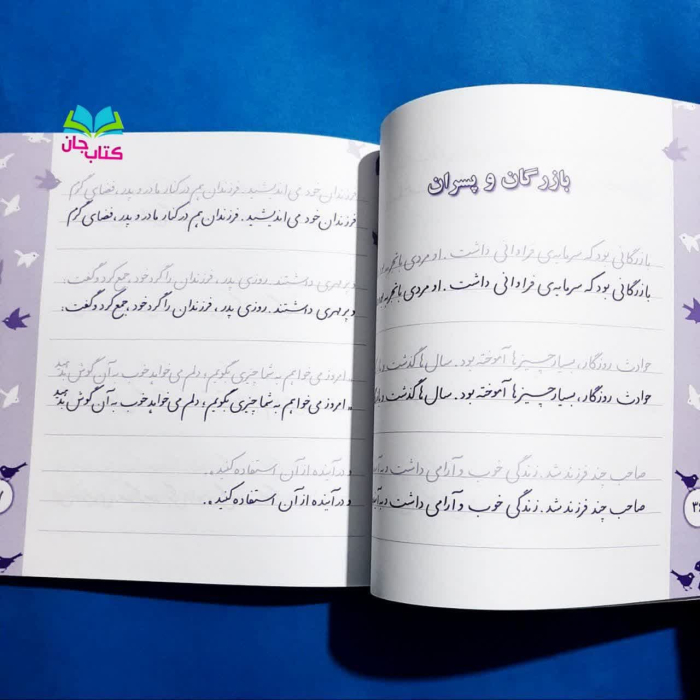 کتاب جان
بازرگان و پسران
بازرگانی بود که سرمایه‌ی فراوانی داشت. او مردی باتجربه
بازرگانی بود که سرمایه‌ی فراوانی داشت. او مردی باتجربه
حوادث روزگار، بسیار چیزها آموخته بود. سال‌ها گذشت و
حوادث روزگار، بسیار چیزها آموخته بود. سال‌ها گذشت و
صاحب چند فرزند شد. زندگی خوب و آرامی داشت و به
صاحب چند فرزند شد. زندگی خوب و آرامی داشت و به
فرزندان خود می‌اندیشید. فرزندان هم در کنار مادر و پدر، فضای گرم
فرزندان خود می‌اندیشید. فرزندان هم در کنار مادر و پدر، فضای گرم
و پر مهری داشتند. روزی پدر، فرزندان را گرد خود، جمع کرد و گفت:
و پر مهری داشتند. روزی پدر، فرزندان را گرد خود، جمع کرد و گفت:
امروز می‌خواهم به شما چیزی بگویم؛ دلم می‌خواهد خوب به آن گوش بدهید
امروز می‌خواهم به شما چیزی بگویم؛ دلم می‌خواهد خوب به آن گوش بدهید
و در آینده از آن استفاده کنید.
و در آینده از آن استفاده کنید.